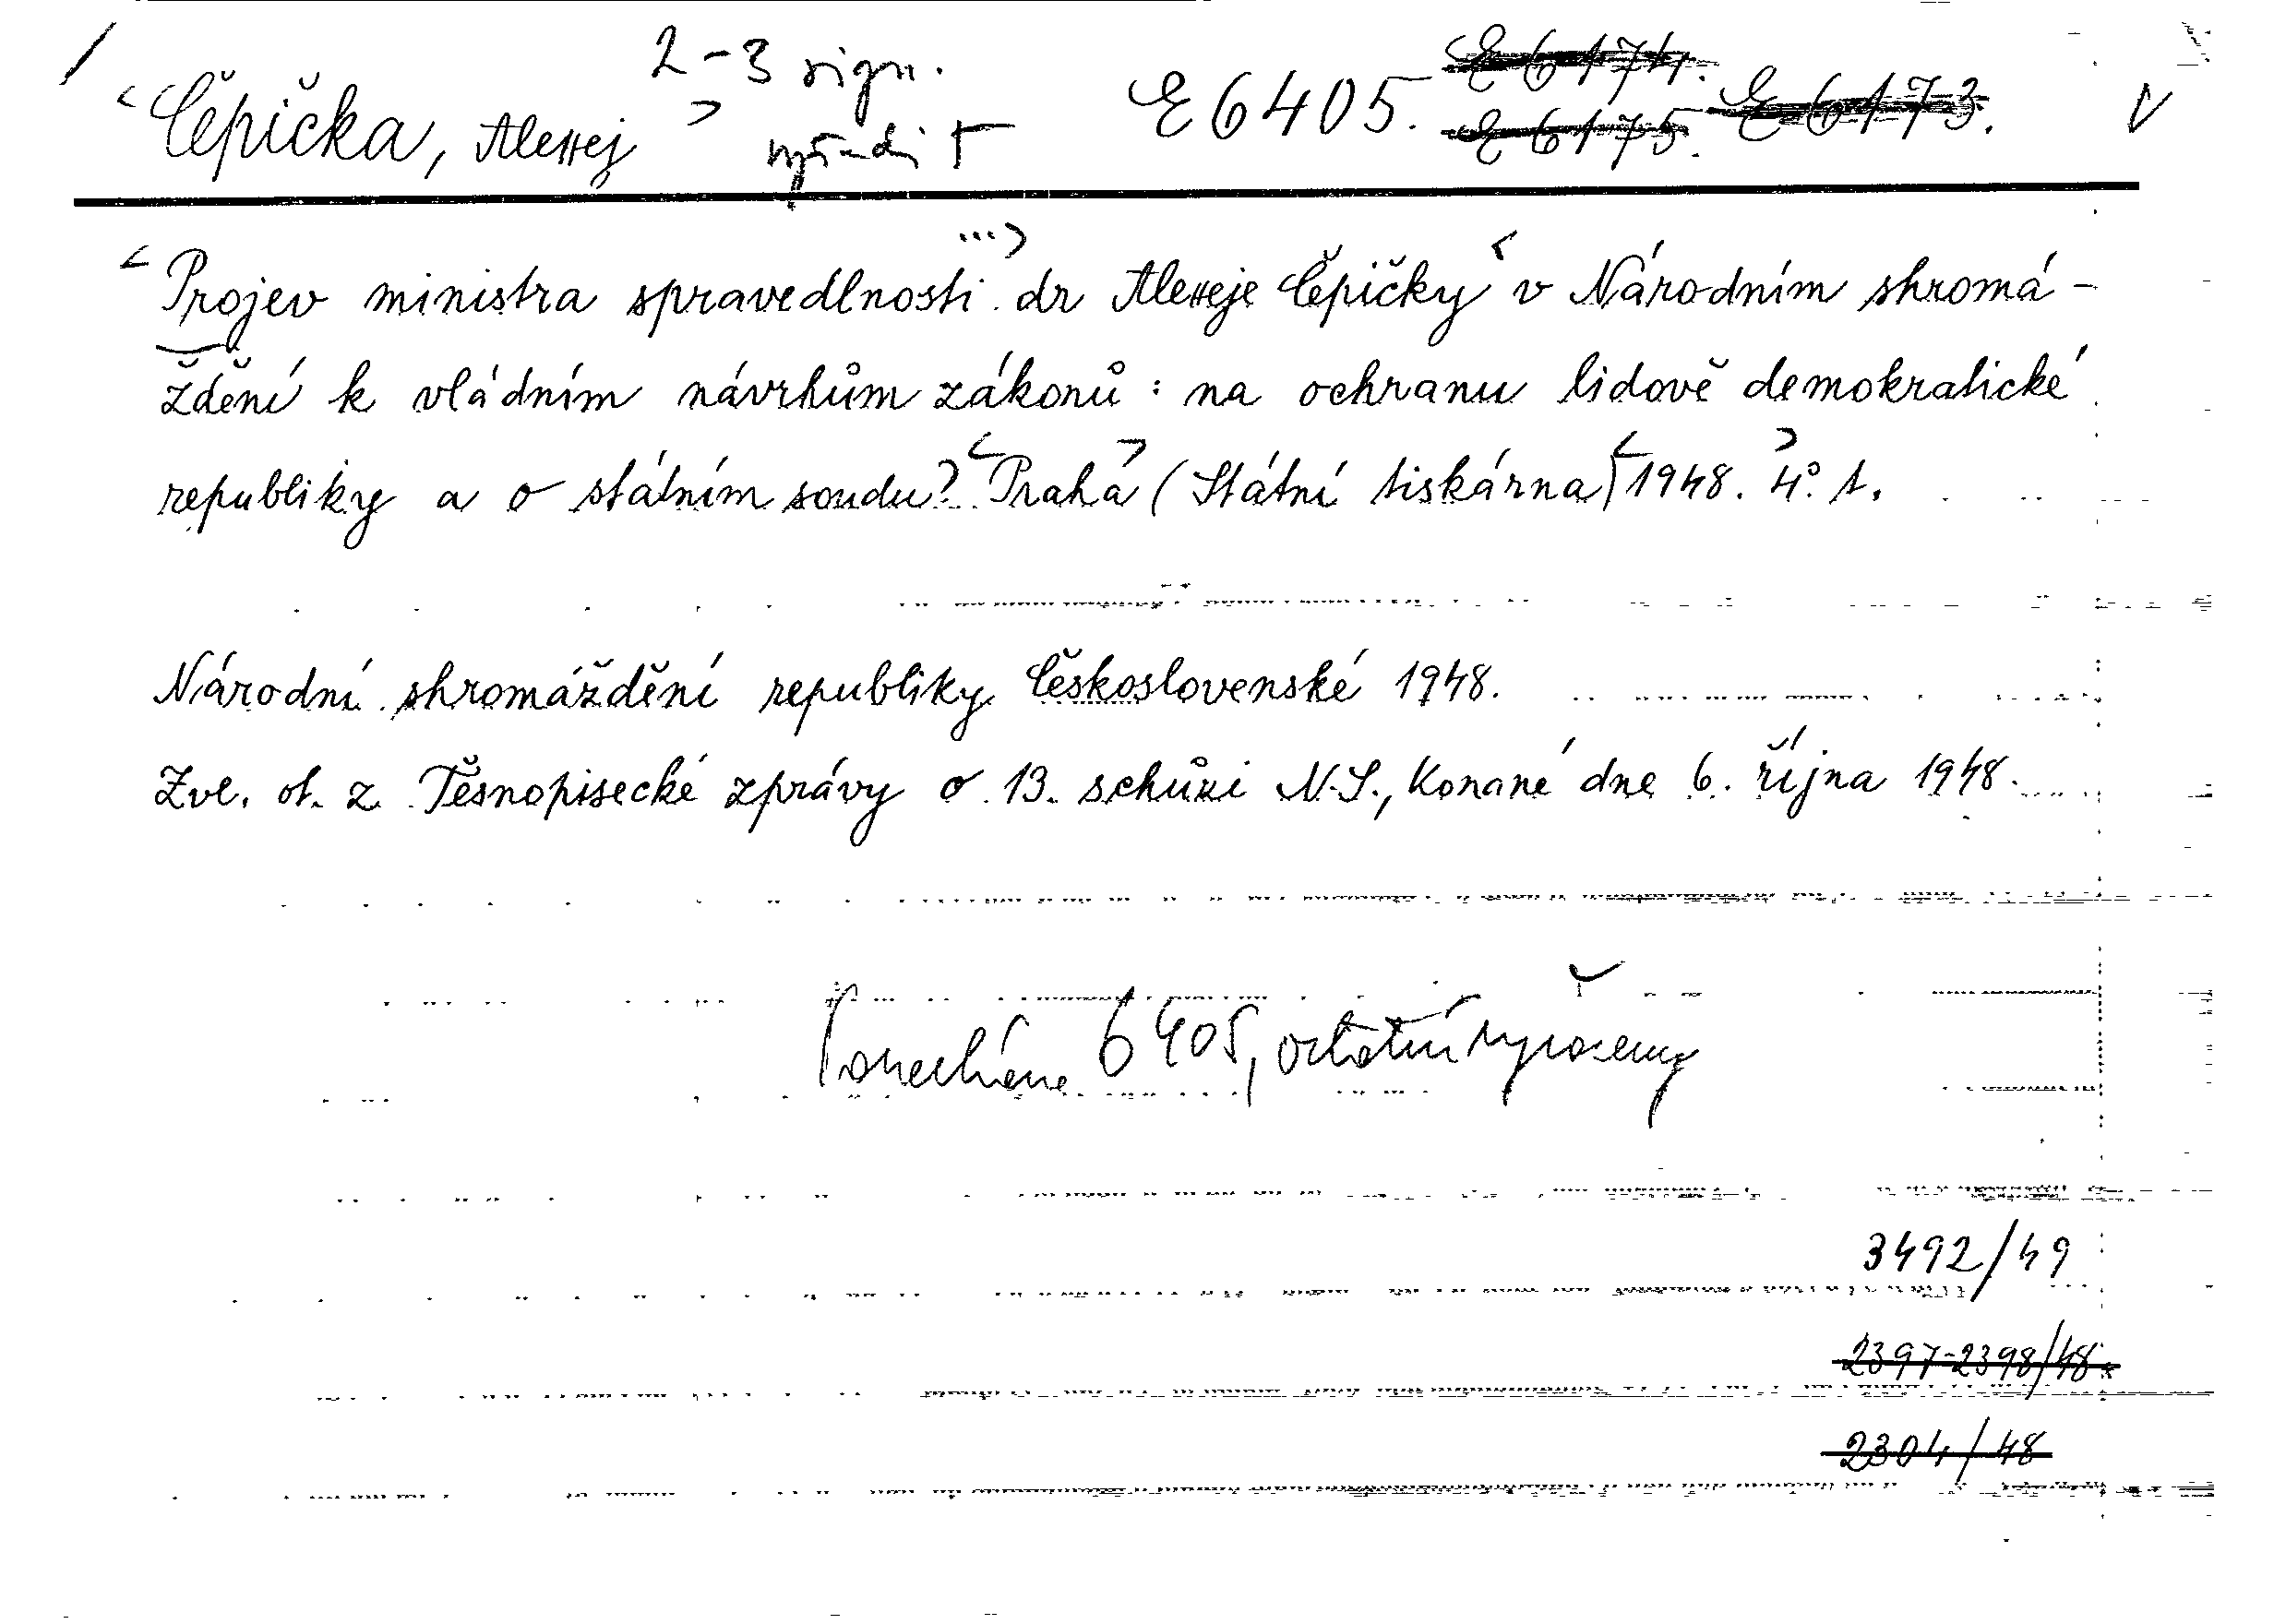 2-3 sign.
Čepička, Alexej
vyřadit
E 6405. E 6174. E 6175. E 6173.
Projev ministra spravedlnosti dr Alexeje Čepičky v Národním shromá-
ždění k vládním návrhům zákonů: na ochranu lidově demokratické
republiky a o státním soudu? Praha (Státní tiskárna) 1948. 4° 1.
Národní shromáždění republiky Československé 1948.
Zvl. ot. z Těsnopisecké zprávy o 13. schůzi N.S., konané dne 6. října 1948.
Ponecháno 6405, ostatní vyřazeny
3492/49
2397-2398/48.
2304/48